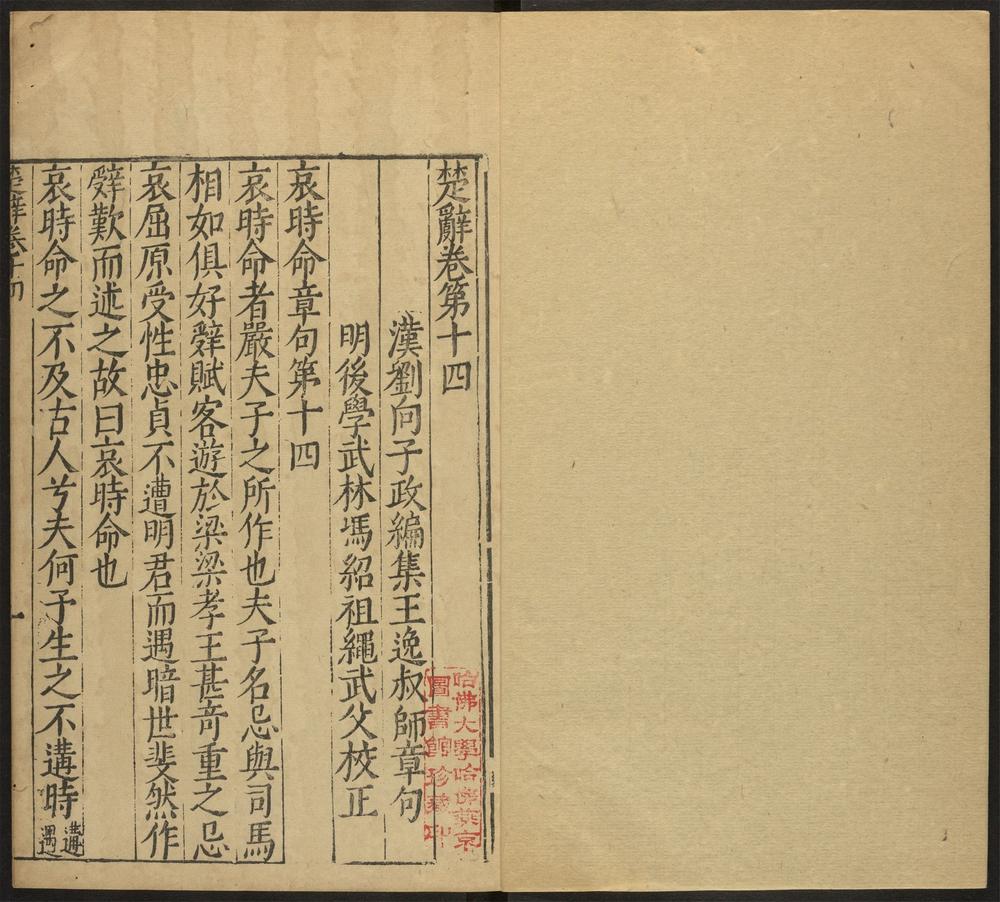 楚辭卷第十四
漢劉向子政編集王逸叔師章句
明後學武林馮紹祖繩武父校正
哀時命章句第十四
哀時命者嚴夫子之所作也夫子名忌與司馬
相如俱好辭賦客遊於梁梁孝王甚奇重之忌
哀屈原受性忠貞不遭明君而遇暗世斐然作
辭歎而述之故曰哀時命也
哀時命之不及古人兮夫何予生之不遘時遘遇
楚辭卷十四
一
哈佛大學哈佛燕京
圖書館珍藏印